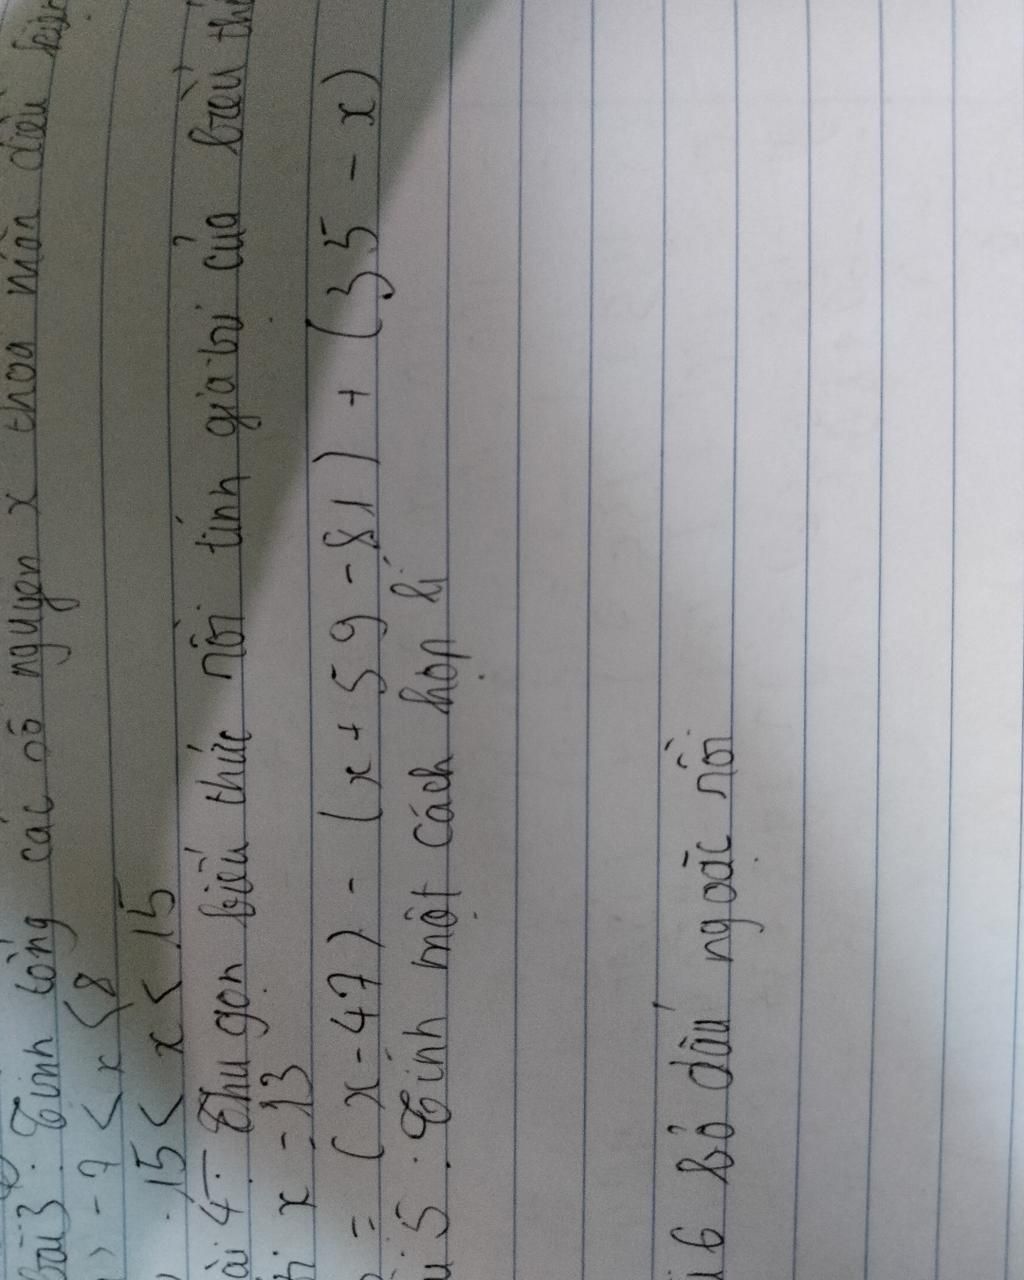 bài 3. Tính tổng các số nguyên x thoả mãn điều
) -7 < x < 8
) . 15 < x < 15
ài 4. Thu gọn biểu thức rồi tính giá trị của biểu
x = 13
= (x - 47) - (x + 59 - 81) + (35 - x)
i 5. Tính một cách hợp lí
i 6 bỏ dấu ngoặc rồi